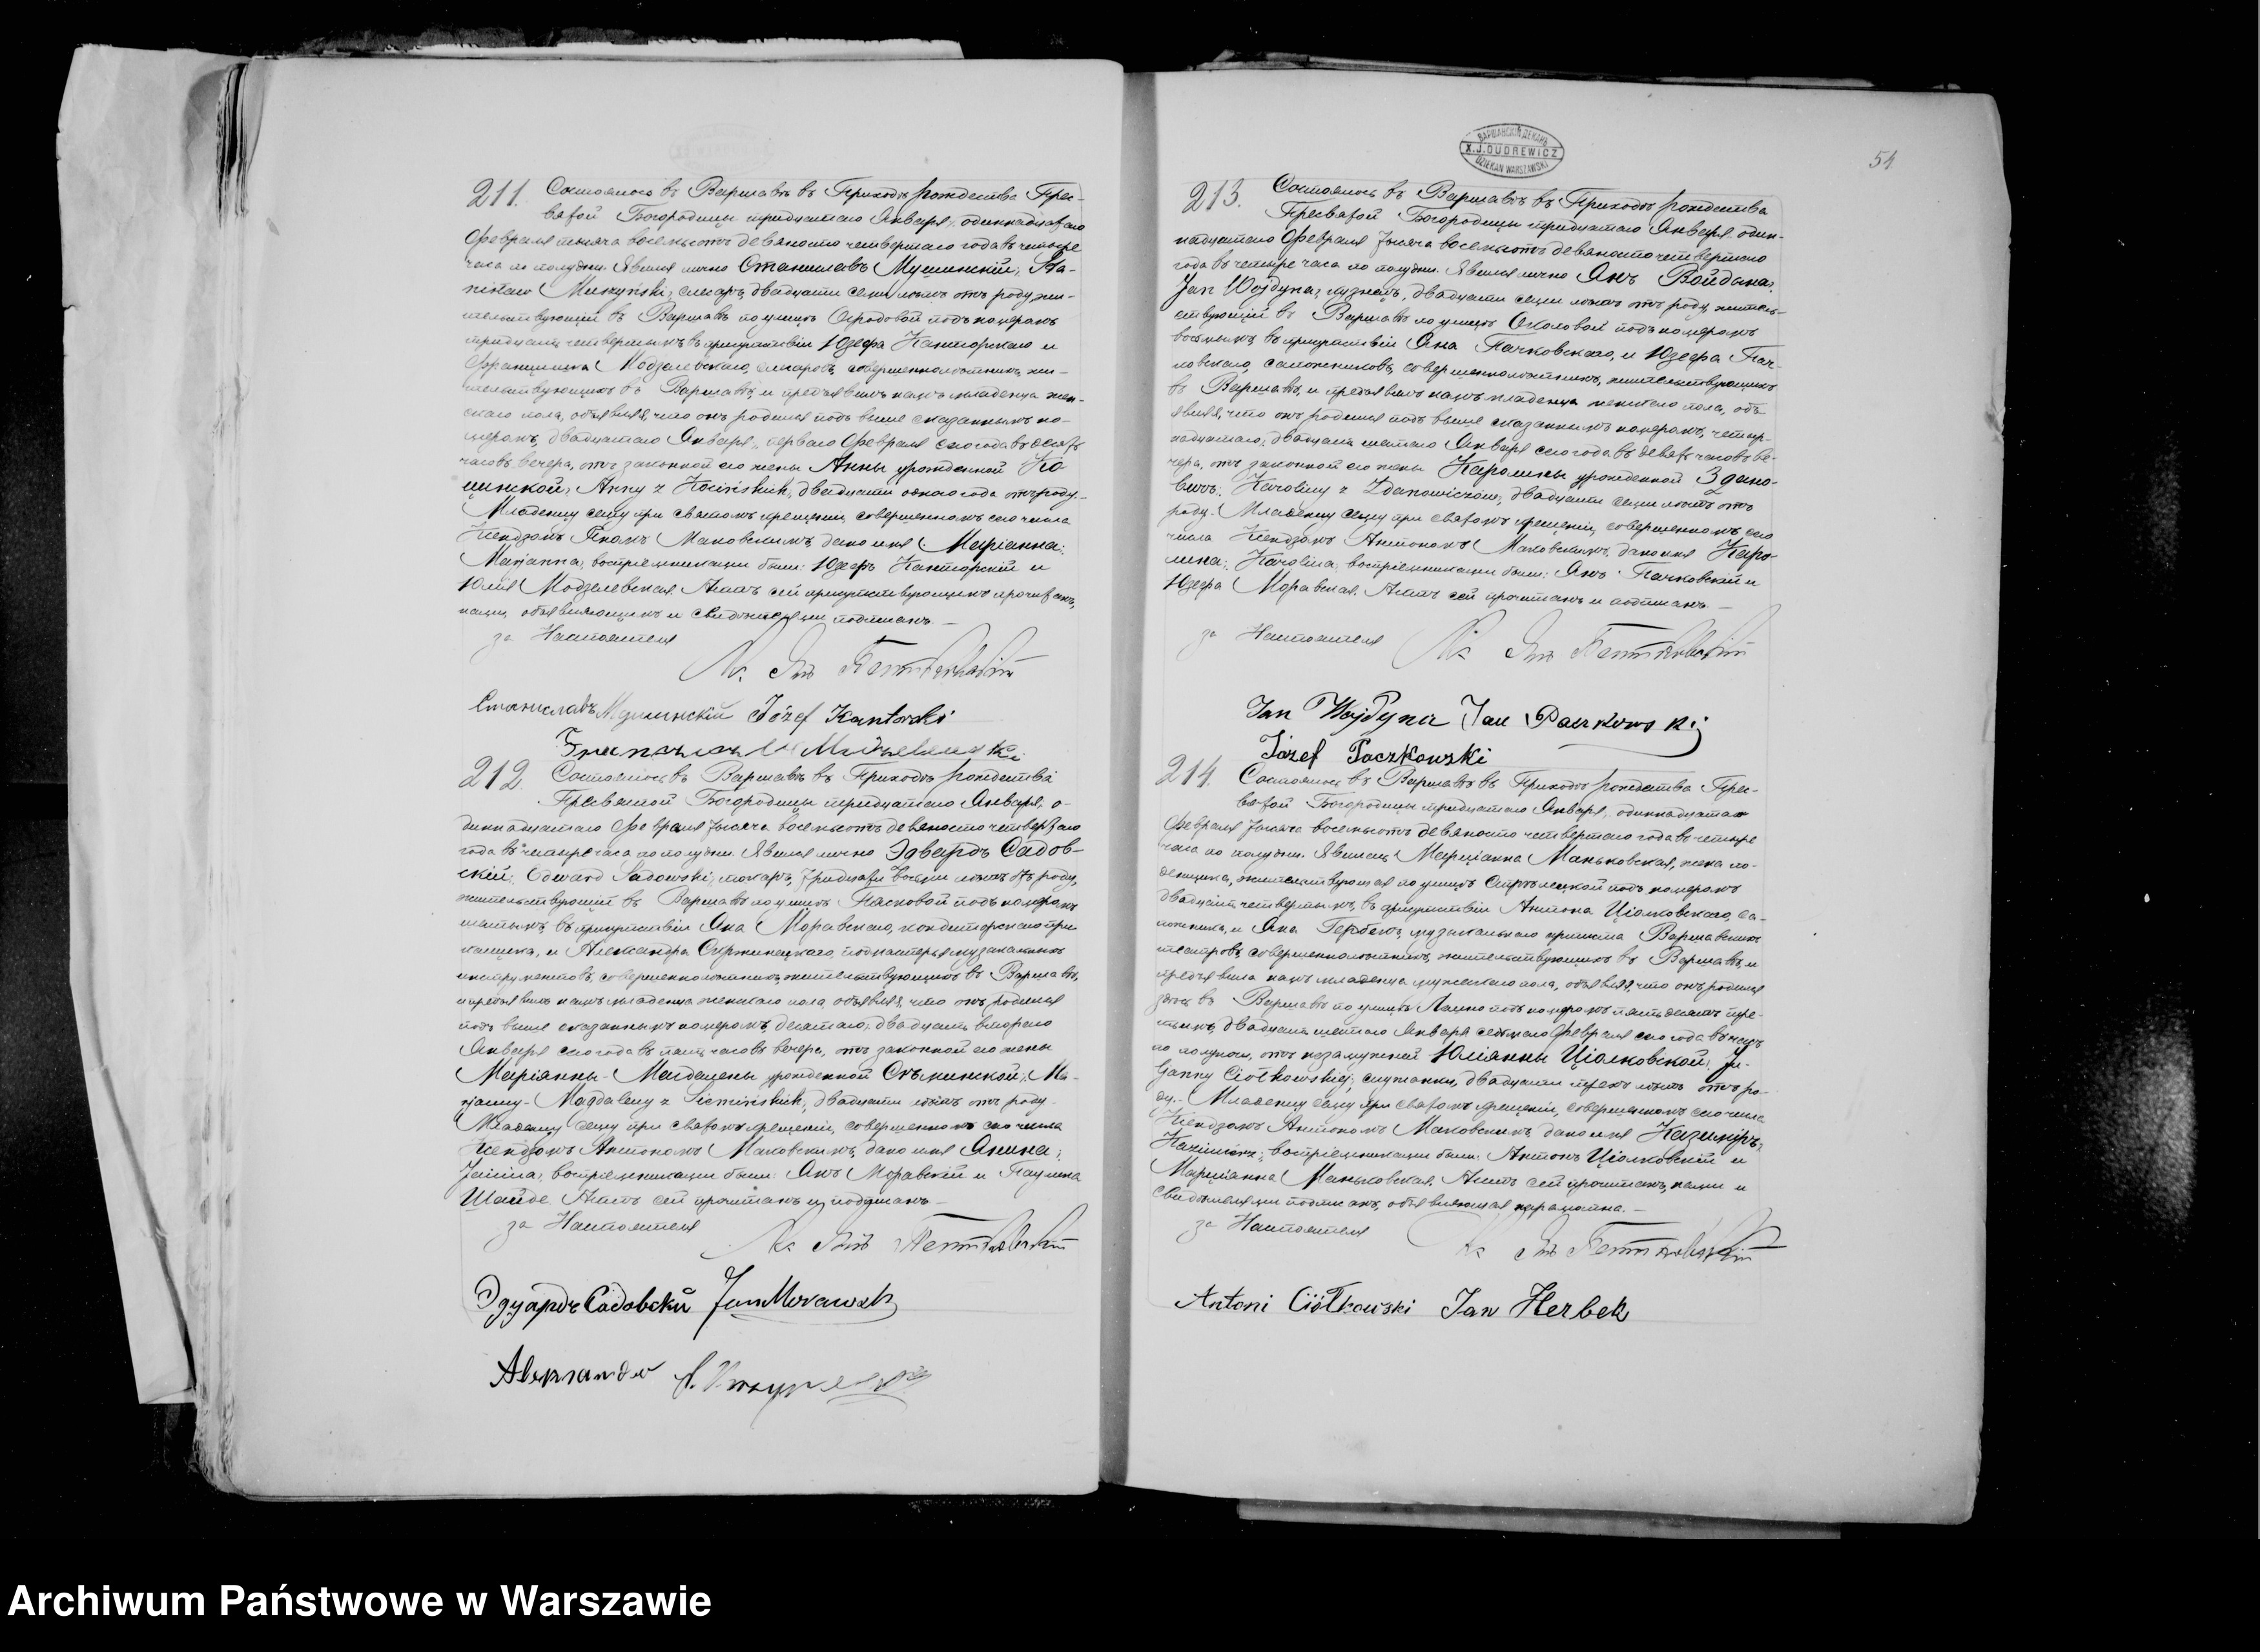 211. Состоялось въ Варшавѣ въ Приходѣ Рождества Прес-
вятой Богородицы тридцатаго Января, одиннадцатаго
Февраля тысяча восемьсотъ девяносто четвертаго года въ четыре
часа по полудни. Явился лично Станиславъ Мушинскій, Sta-
nisław Muszyński, слесарь, двадцати семи лѣтъ отъ роду, жи-
тельствующій въ Варшавѣ по улицѣ Огродовой подъ номеромъ
тридцать четвертымъ, въ присутствіи Юзефа Канторскаго и
Франциска Модзелевскаго, слесаровъ, совершеннолѣтнихъ, жи-
тельствующихъ въ Варшавѣ, и предъявилъ намъ младенца жен-
скаго пола, объявляя, что онъ родился подъ выше сказаннымъ но-
меромъ, двадцатаго Января, перваго Февраля сего года въ десять
часовъ вечера, отъ законной его жены Анны урожденной Ко
цинской, Anny z Kocińskich, двадцати одного года отъ роду.
Младенцу сему при святомъ крещеніи, совершенномъ сего числа
Ксендзомъ Маковскимъ, дано имя Маріанна,
Marjanna, воспріемниками были: Юзефъ Канторскій и
Юлія Модзелевская. Актъ сей присутствующимъ прочитанъ,
нами, объявляющимъ и свидѣтелями подписанъ. —
за Настоятеля
Кс. Янъ
Станиславъ Мушинскій Józef Kantorski
212. Состоялось въ Варшавѣ въ Приходѣ Рождества
Пресвятой Богородицы тридцатаго Января, о-
диннадцатаго Февраля тысяча восемьсотъ девяносто четвертаго
года въ четыре часа по полудни. Явился лично Эдвардъ Садов-
скій, Edward Sadowski, токарь, тридцати восьми лѣтъ отъ роду,
жительствующій въ Варшавѣ по улицѣ Пясковой подъ номеромъ
шестымъ, въ присутствіи Яна Моравскаго, кондитерскаго при-
кащика, и Александра Скржинецкаго, подмастерья музыкальныхъ
инструментовъ, совершеннолѣтнихъ, жительствующихъ въ Варшавѣ,
и предъявилъ намъ младенца женскаго пола, объявляя, что онъ родился
подъ выше сказаннымъ номеромъ, десятаго, двадцать втораго
Января сего года въ пять часовъ вечера, отъ законной его жены
Маріянны-Магдалены урожденной Сѣминской, Ma-
rjanny-Magdaleny z Siemińskich, двадцати лѣтъ отъ роду.
Младенцу сему при святомъ крещеніи, совершенномъ сего числа
Ксендзомъ Антономъ Маковскимъ, дано имя Янина,
Janina, воспріемниками были: Янъ Моравскій и Паулина
Шайде. Актъ сей прочитанъ и подписанъ. —
за Настоятеля
Кс. Янъ
Эдуардъ Садовскій Jan Morawski
Aleksander
ВАРШАВСКІЙ ДЕКАНЪ
X.J.DUDREWICZ
DZIEKAN WARSZAWSKI
54
213. Состоялось въ Варшавѣ въ Приходѣ Рождества
Пресвятой Богородицы тридцатаго Января, один-
надцатаго Февраля тысяча восемьсотъ девяносто четвертаго
года въ четыре часа по полудни. Явился лично Янъ Войдына,
Jan Wojdyna, кузнецъ, двадцати семи лѣтъ отъ роду, житель-
ствующій въ Варшавѣ по улицѣ Околовой подъ номеромъ
восьмымъ, въ присутствіи Яна Пачковскаго, и Юзефа Пач-
ковскаго, сапожниковъ, совершеннолѣтнихъ, жительствующихъ
въ Варшавѣ, и предъявилъ намъ младенца женскаго пола, объ-
являя, что онъ родился подъ выше сказаннымъ номеромъ, четыр-
надцатаго, двадцать шестаго Января сего года въ девять часовъ ве-
чера, отъ законной его жены Каролины урожденной Здано-
вичъ, Karoliny z Zdanowiczów, двадцати семи лѣтъ отъ
роду. Младенцу сему при святомъ крещеніи, совершенномъ сего
числа Ксендзомъ Антономъ Маковскимъ, дано имя Каро-
лина, Karolina, воспріемниками были: Янъ Пачковскій и
Юзефа Моравская. Актъ сей прочитанъ и подписанъ. —
за Настоятеля
Кс. Янъ
Jan Wojdyna Jan Paczkowski
Józef Paczkowski
214. Состоялось въ Варшавѣ въ Приходѣ Рождества Прес-
вятой Богородицы тридцатаго Января, одиннадцатаго
Февраля тысяча восемьсотъ девяносто четвертаго года въ четыре
часа по полудни. Явилась Марціанна Маньковская, жена по-
денщика, жительствующая по улицѣ Стрѣлецкой подъ номеромъ
двадцать четвертымъ, въ присутствіи Антона Ціолковскаго, са-
пожника, и Яна Гербекъ, музыкальнаго артиста Варшавскихъ
театровъ, совершеннолѣтнихъ, жительствующихъ въ Варшавѣ, и
предъявила намъ младенца мужескаго пола, объявляя, что онъ родился
здѣсь въ Варшавѣ по улицѣ Лешно подъ номеромъ пятьдесятъ тре-
тьимъ, двадцать шестаго Января седьмаго Февраля сего года въ часъ
по полуночи, отъ незамужней Юліянны Ціолковской, Ju-
ljanny Ciółkowskiej, служанки, двадцати трехъ лѣтъ отъ ро-
ду. Младенцу сему при святомъ крещеніи, совершенномъ сего числа
Ксендзомъ Антономъ Маковскимъ, дано имя Казиміръ,
Kazimierz, воспріемниками были: Антонъ Ціолковскій и
Марціанна Маньковская. Актъ сей прочитанъ, нами и
свидѣтелями подписанъ, объявляющая неграмотна. —
за Настоятеля
Кс. Янъ
Antoni Ciółkowski Jan Herbek
Archiwum Państwowe w Warszawie